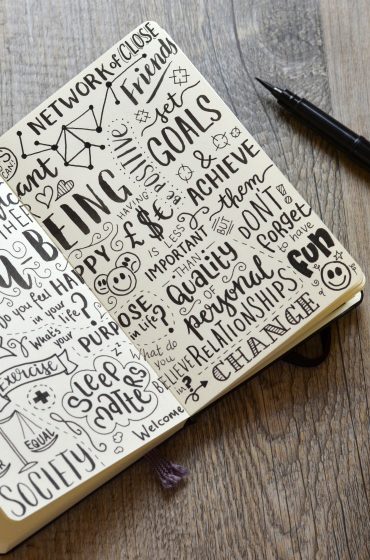 NETWORK of CLOSE
Friends
BEING
be positive
set
GOALS
&
ACHIEVE
them
BUT
DON'T
forget
to have
fun
HAVING
£$€
is LESS
IMPORTANT
THAN
Quality
OF
personal
RELATIONSHIPS
What do
you
BELIEVE
in?
CHANGE
Do you feel
in your
life?
What's
your
PURPOSE
in life?
Exercise
SLEEP
MATTERS
EQUAL
SOCIETY
Welcome